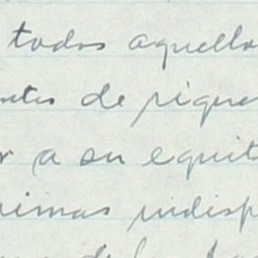 todos aquello
ntes de rique
r a su equit
nimas indisp